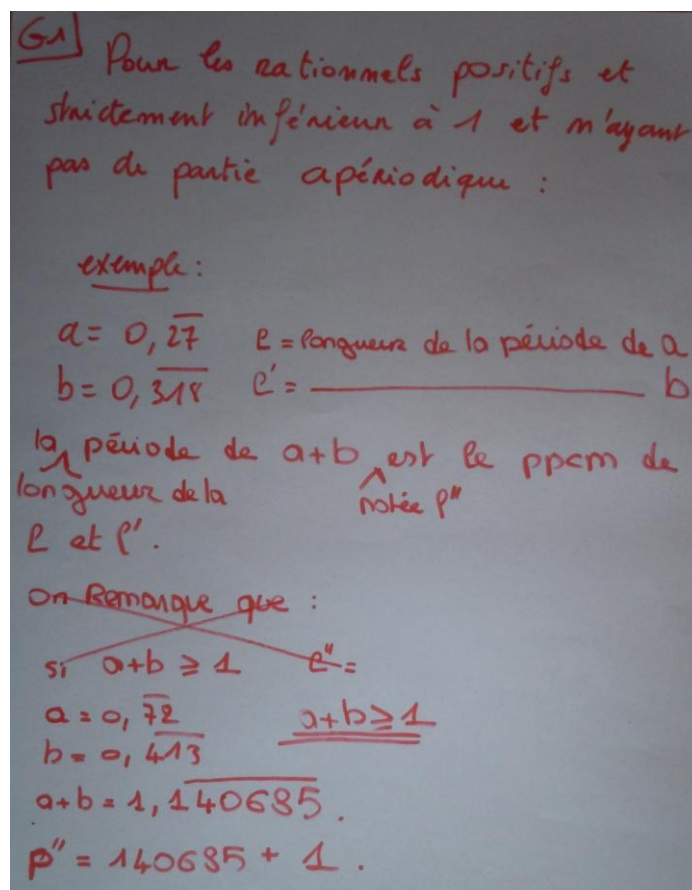 G1 Pour les rationnels positifs et
strictement inférieur à 1 et n'ayant
pas de partie apériodique :
exemple :
a = 0,2̅7̅ ℓ = longueur de la période de a
b = 0,3̅1̅8̅ ℓ' = ——————— b
la longueur de la période de a+b notée ℓ" est le ppcm de
ℓ et ℓ'.
On Remarque que :
si a+b ≥ 1 ℓ" =
a = 0,7̅2̅ a+b ≥ 1
b = 0,4̅1̅3̅
a+b = 1,1̅4̅0̅6̅8̅5̅.
p" = 140685 + 1.